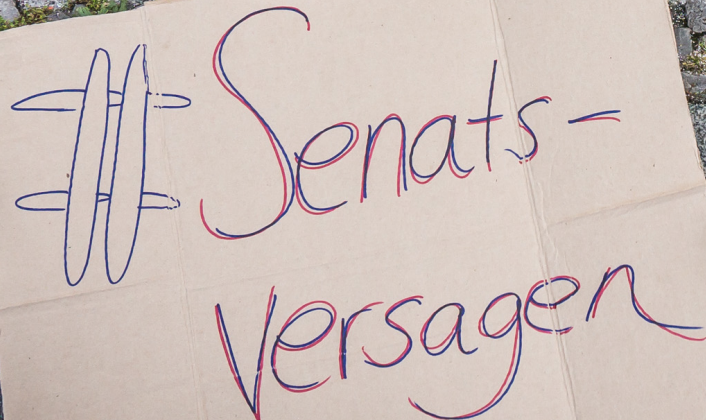 #Senats-
Versagen